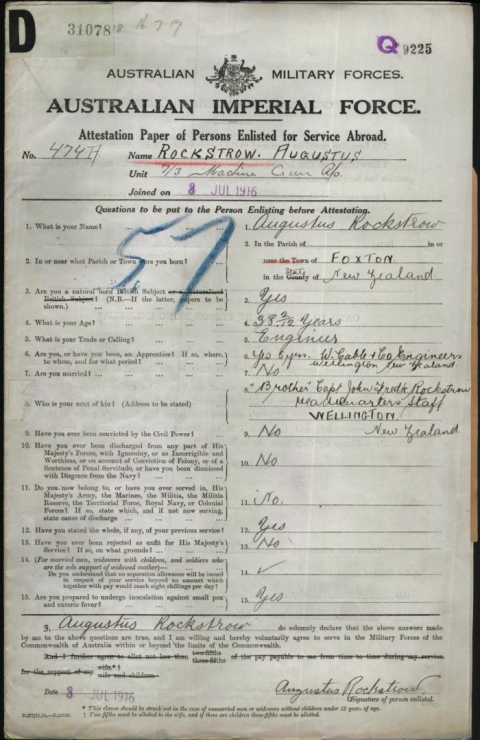 D
31078
Q 9225
AUSTRALIAN MILITARY FORCES.
AUSTRALIAN IMPERIAL FORCE.
Attestation Paper of Persons Enlisted for Service Abroad.
No. 474
Name ROCKSTROW. AUGUSTUS
Unit 7/3 Machine Gun
Joined on 8 JUL 1916
Questions to be put to the Person Enlisting before Attestation.
57
1. What is your Name? 1. Augustus Rockstrow
2. In or near what Parish or Town were you born? 2. In the Parish of in or
near the Town of FOXTON
in the State County of New Zealand
3. Are you a natural born British Subject or a Naturalised
British Subject? (N.B.—If the latter, papers to be
shown.) 3. Yes
4. What is your Age? 4. 38 2/12 Years
5. What is your Trade or Calling? 5. Engineer
6. Are you, or have you been, an Apprentice? If so, where,
to whom, and for what period? 6. Yes 6 yrs. W. Cable & Co Engineers
Wellington New Zealand.
7. Are you married? 7. No
8. Who is your next of kin? (Address to be stated) 8. Brother Capt John Fredk Rockstrow
Headquarters Staff
WELLINGTON.
New Zealand.
9. Have you ever been convicted by the Civil Power? 9. No
10. Have you ever been discharged from any part of His
Majesty's Forces, with Ignominy, or as Incorrigible and
Worthless, or on account of Conviction of Felony, or of a
Sentence of Penal Servitude, or have you been dismissed
with Disgrace from the Navy? 10. No
11. Do you now belong to, or have you ever served in, His
Majesty's Army, the Marines, the Militia, the Militia
Reserve, the Territorial Force, Royal Navy, or Colonial
Forces? If so, state which, and if not now serving,
state cause of discharge 11. No.
12. Have you stated the whole, if any, of your previous service? 12. Yes
13. Have you ever been rejected as unfit for His Majesty's
Service? If so, on what grounds? 13. No
14. (For married men, widowers with children, and soldiers who
are the sole support of widowed mother—
Do you understand that no separation allowance will be issued
in respect of your service beyond an amount which
together with pay would reach eight shillings per day? 14. ✓
15. Are you prepared to undergo inoculation against small pox
and enteric fever? 15. Yes
I, Augustus Rockstrow do solemnly declare that the above answers made
by me to the above questions are true, and I am willing and hereby voluntarily agree to serve in the Military Forces of the
Commonwealth of Australia within or beyond the limits of the Commonwealth.
And I further agree to allot not less than two-fifths three-fifths of the pay payable to me from time to time during my service
for the support of my wife*†
wife and children.
Date 8 JUL 1916
Augustus Rockstrow
Signature of person enlisted.
* This clause should be struck out in the case of unmarried men or widowers without children under 18 years of age.
† Two fifths must be allotted to the wife, and if there are children three-fifths must be allotted.